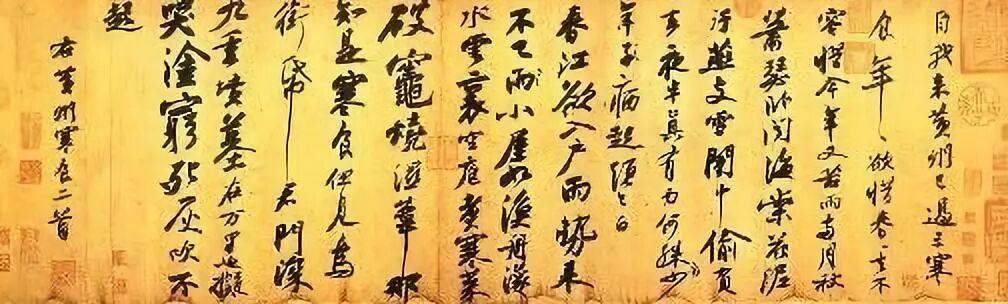 自我來黃州已過三寒
食年〻欲惜春春去不
容惜今年又苦雨兩月秋
蕭瑟臥聞海棠花泥
汙燕支雪闇中偷負
去夜半真有力何殊少
年子病起頭已白
春江欲入戶雨勢來
不已雨小屋如漁舟濛〻
水雲裏空庖煮寒菜
破竈燒濕葦那
知是寒食但見烏
銜帋君門深
九重墳墓在万里也擬
哭塗窮死灰吹不
起
右黃州寒食二首